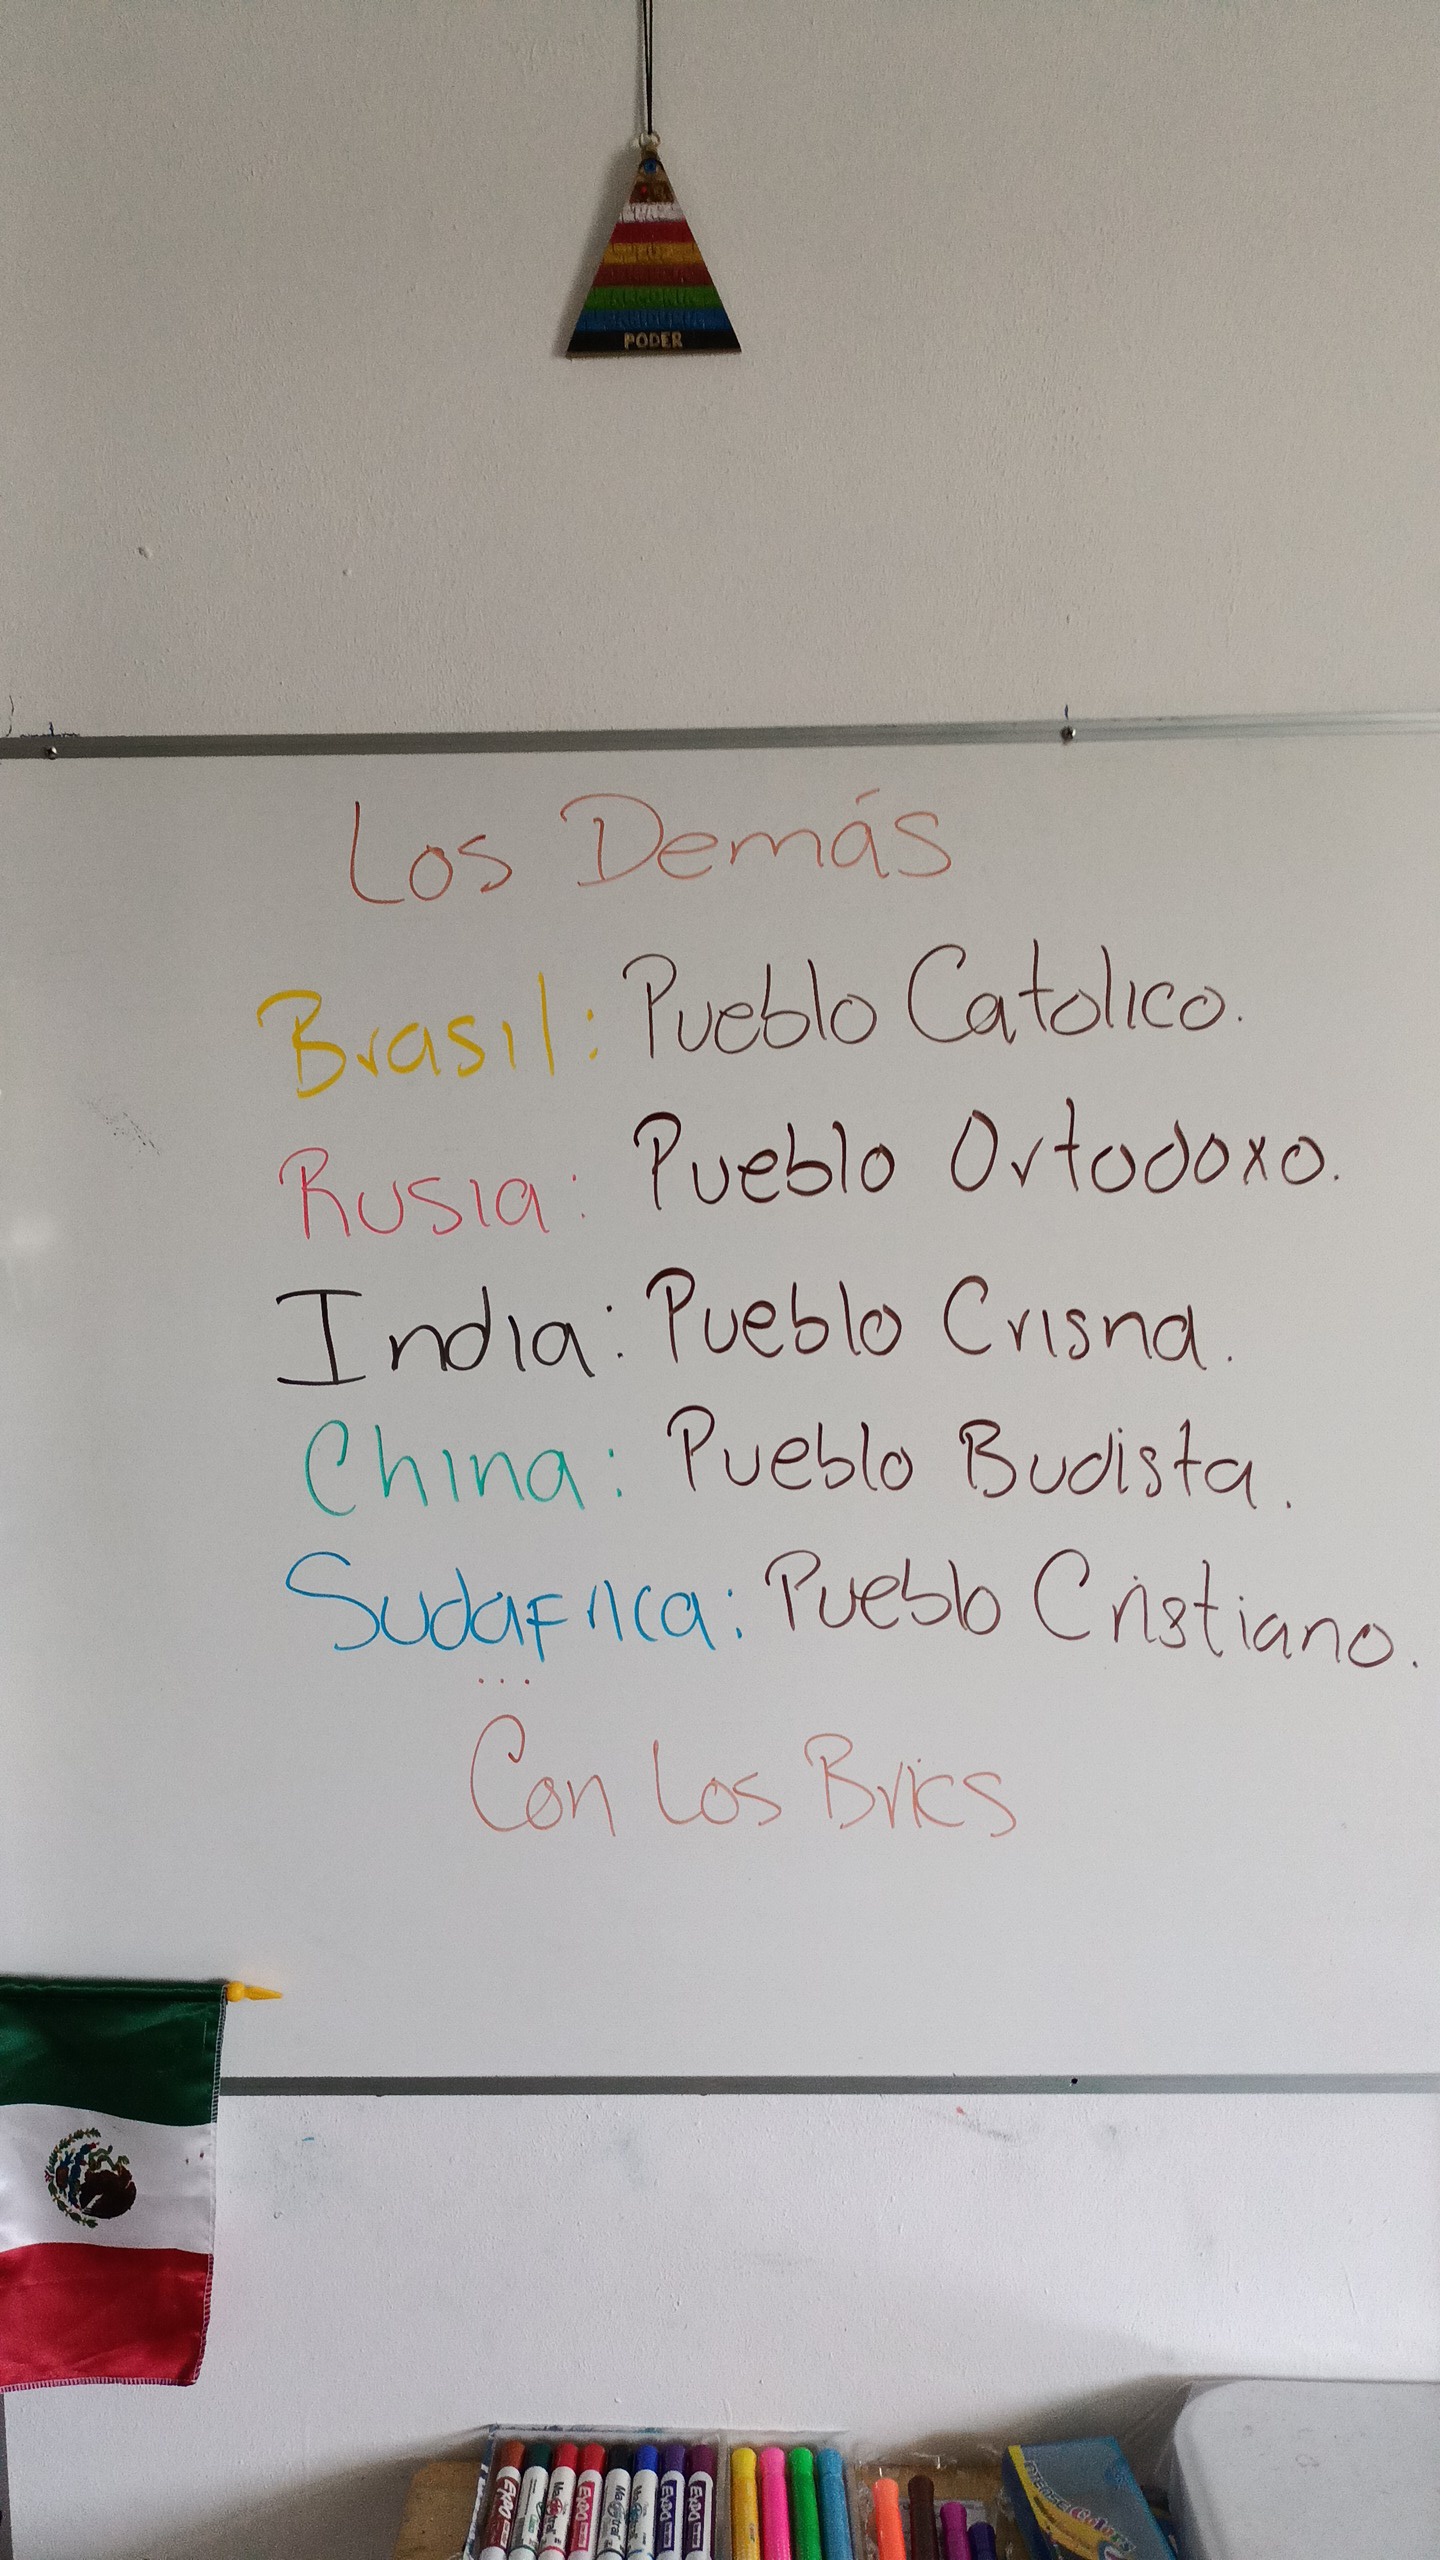 PODER
Los Demás
Brasil: Pueblo Catolico.
Rusia: Pueblo Ortodoxo.
India: Pueblo Crisna.
China: Pueblo Budista.
Sudafrica: Pueblo Cristiano.
...
Con Los Brics
EXPO
EXPO
EXPO
EXPO